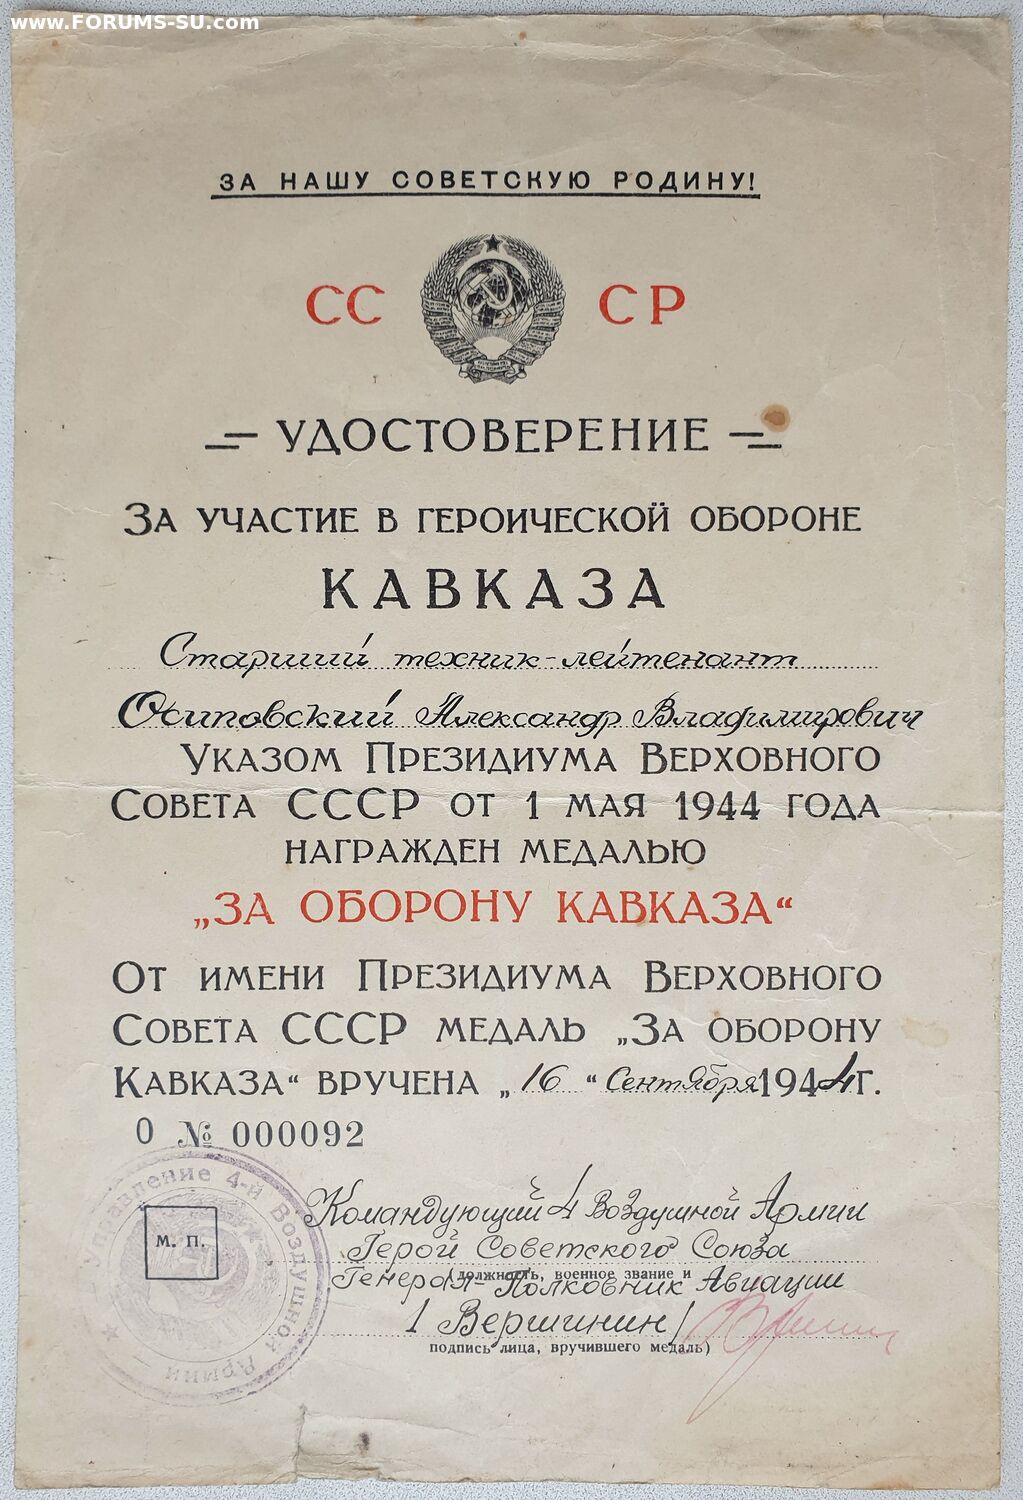 www.FORUMS-SU.com
ЗА НАШУ СОВЕТСКУЮ РОДИНУ!
СС СР
УДОСТОВЕРЕНИЕ
ЗА УЧАСТИЕ В ГЕРОИЧЕСКОЙ ОБОРОНЕ
КАВКАЗА
Старший техник-лейтенант
Осиповский Александр Владимирович
УКАЗОМ ПРЕЗИДИУМА ВЕРХОВНОГО
СОВЕТА СССР ОТ 1 МАЯ 1944 ГОДА
НАГРАЖДЕН МЕДАЛЬЮ
„ЗА ОБОРОНУ КАВКАЗА“
ОТ ИМЕНИ ПРЕЗИДИУМА ВЕРХОВНОГО
СОВЕТА СССР МЕДАЛЬ „ЗА ОБОРОНУ
КАВКАЗА“ ВРУЧЕНА „16“ Сентября 1944 г.
О № 000092
Управление 4-й Воздушной Армии
М. П.
Командующий 4 Воздушной Армии
Герой Советского Союза
(должность, военное звание и
Генерал-Полковник Авиации
/Вершинин/
подпись лица, вручившего медаль)